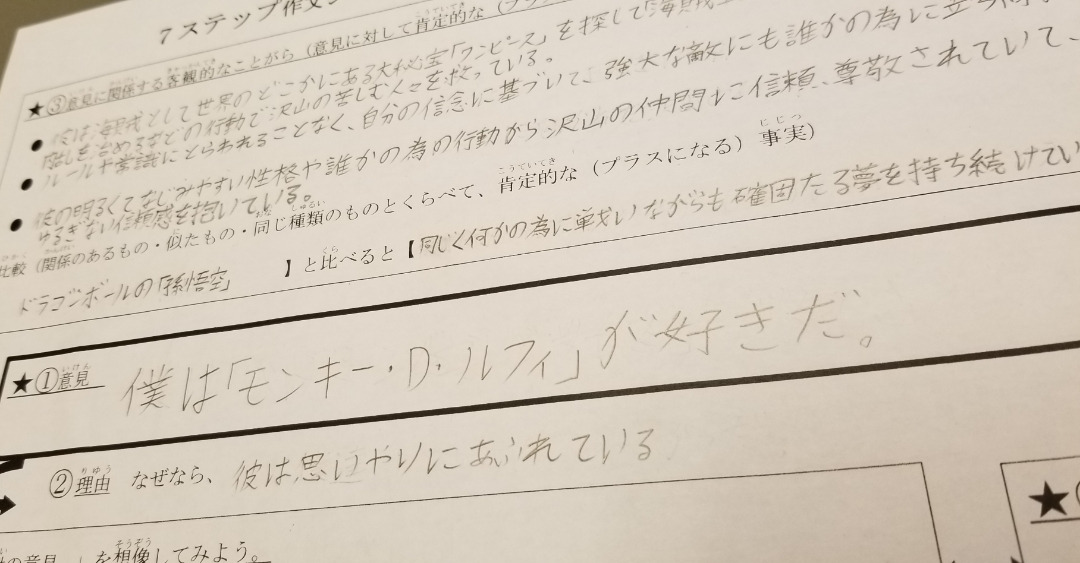 7ステップ作文
★③意見に関係する客観的なことがら(意見に対して肯定的な(プラス
● 彼は海賊として世界のどこかにある大秘宝「ワンピース」を探して「海賊
などの行動で沢山の苦しむ人々を救っている。
● ルールや常識にとらわれることなく、自分の信念に基づいて、強大な敵にも誰かの為に立ち
● 彼の明るくてなじみやすい性格や誰かの為の行動から沢山の仲間に信頼、尊敬されていて、
ゆるぎない信頼感を抱いている。
比較(関係のあるもの・似たもの・同じ種類のものとくらべて、肯定的な(プラスになる)事実)
ドラゴンボールの「孫悟空」 】と比べると【同じく何かの為に戦いながらも確固たる夢を持ち続けてい
★①意見 僕は「モンキー・D・ルフィ」が好きだ。
②理由 なぜなら、彼は思いやりにあふれている
の意見 」を想像してみよう。
★